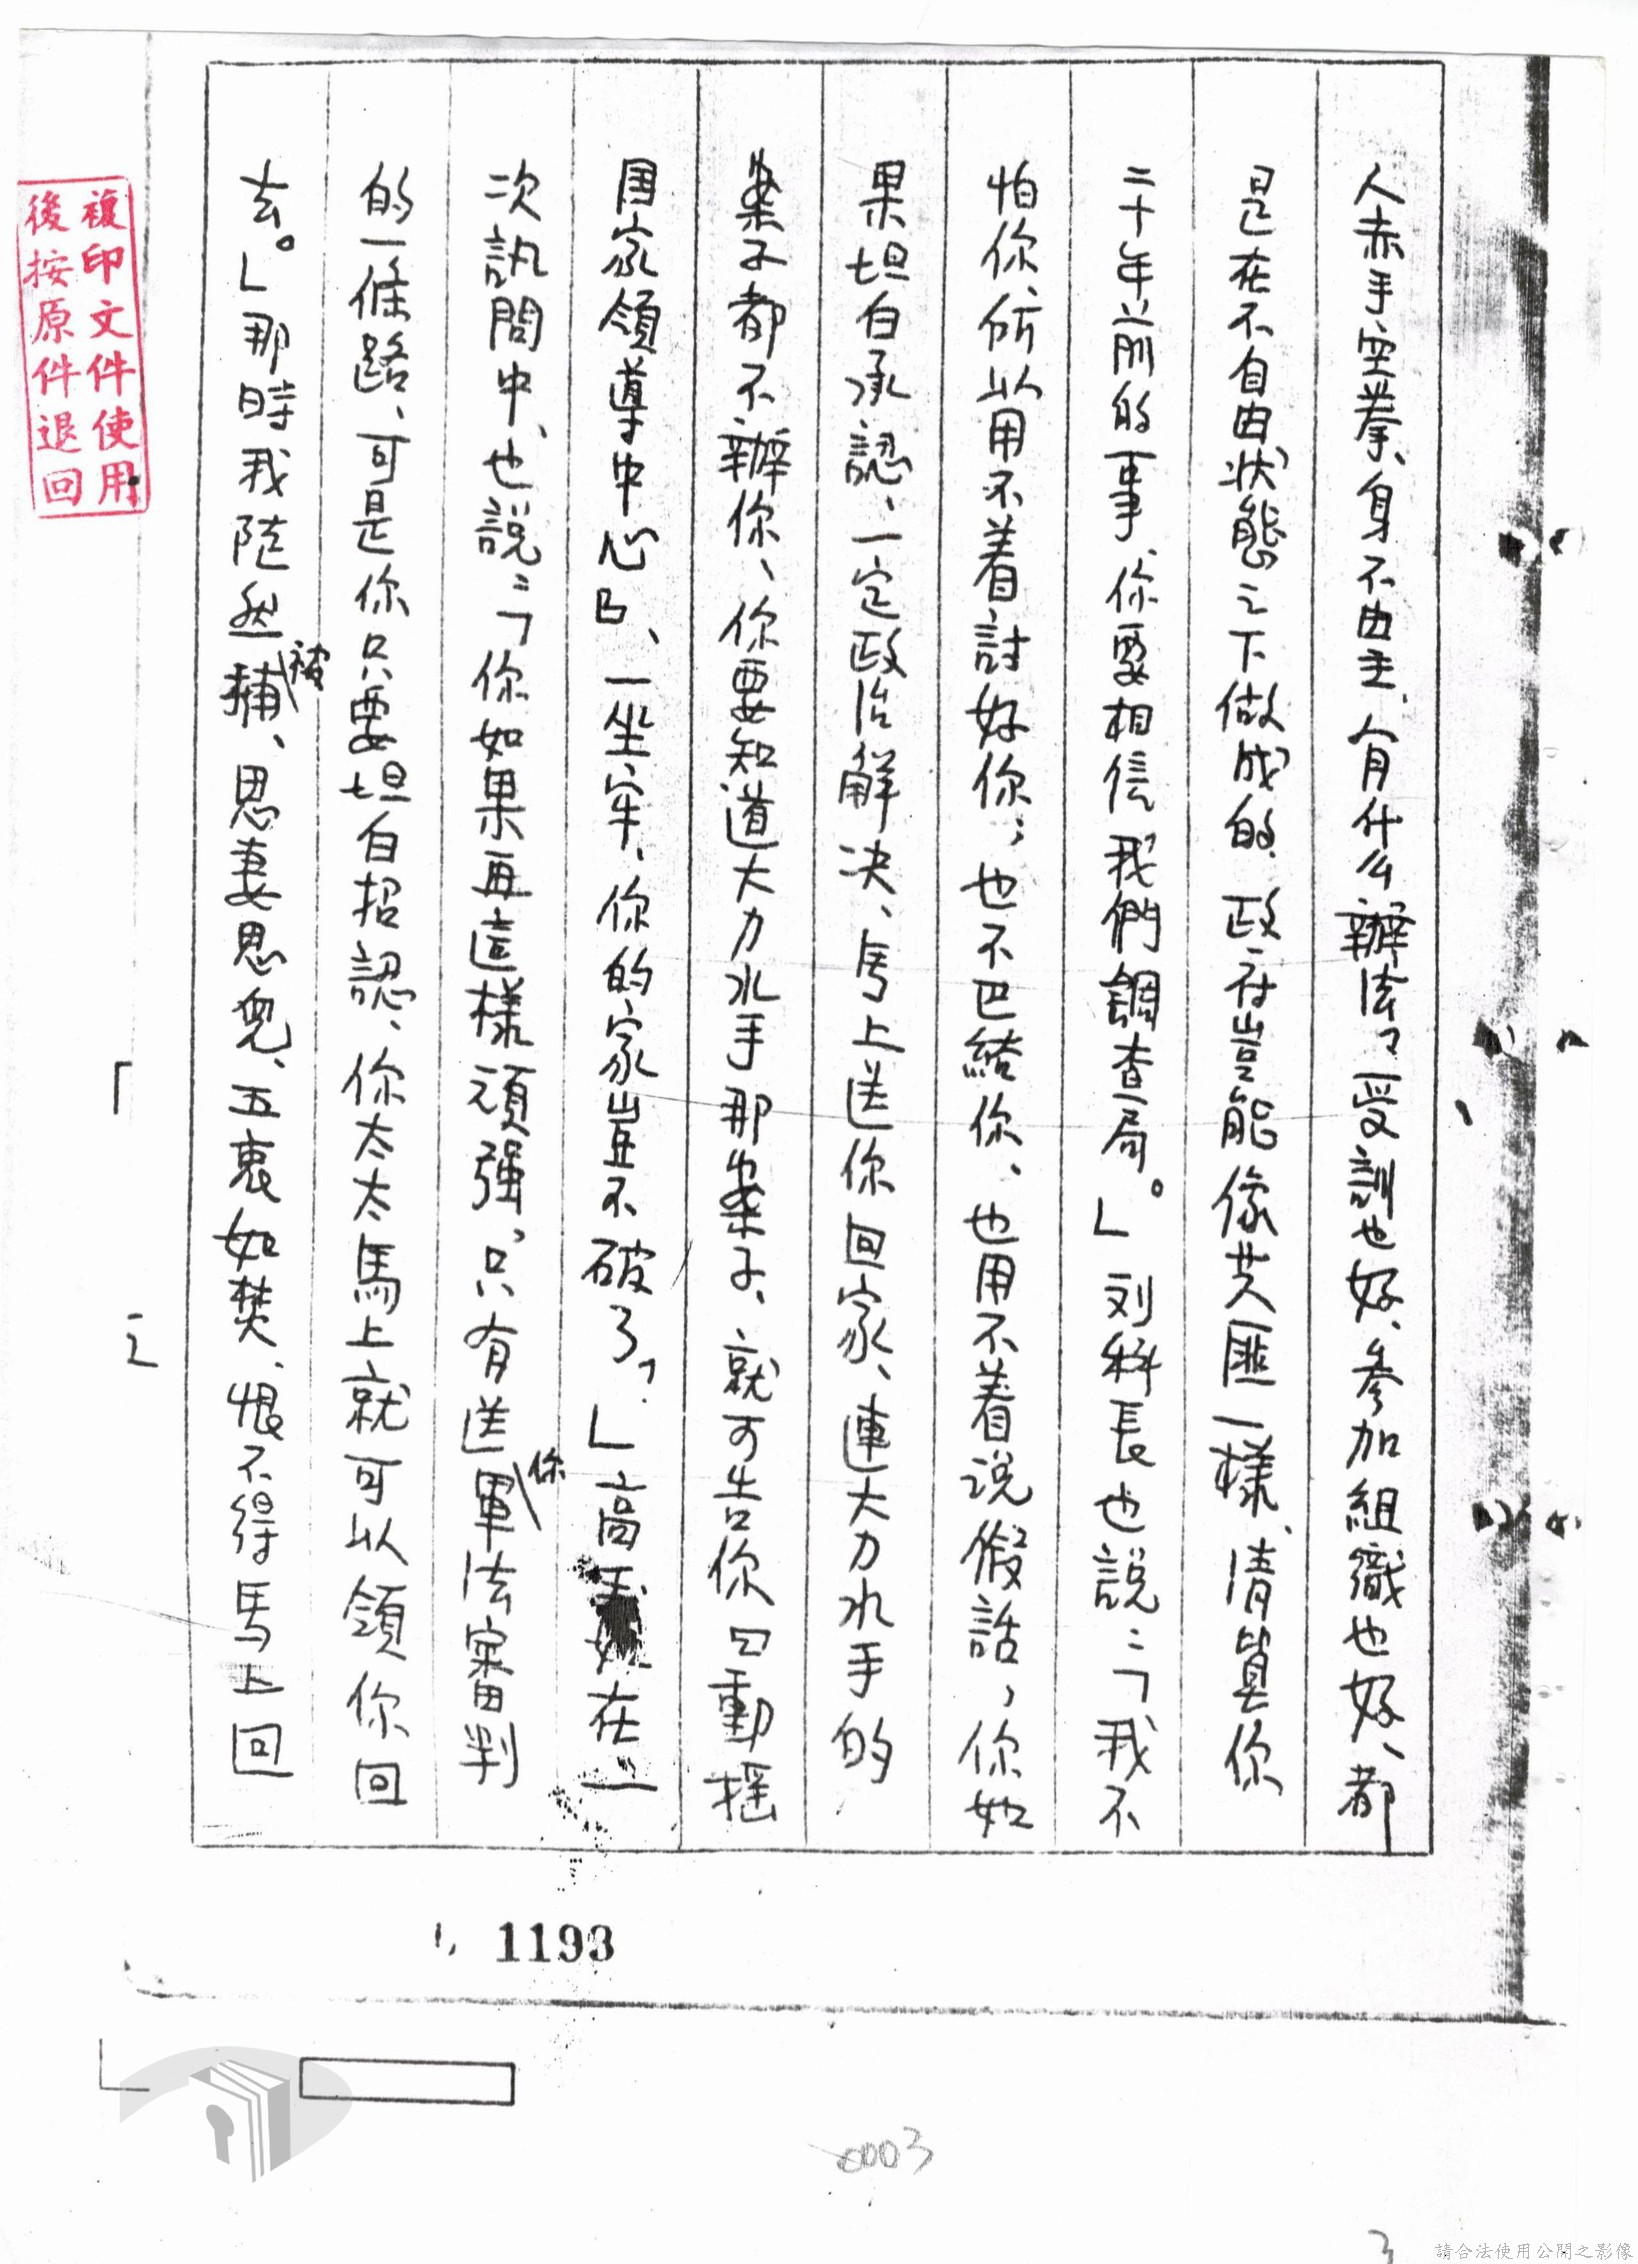 人赤手空拳、身不由主、有什么辦法？受訓也好、参加組織也好、都
是在不自由狀態之下做成的、政府豈能像共匪一樣、清算你
二十年前的事、你要相信我們調查局。」刘科長也說：「我不
怕你、所以用不着討好你；也不巴結你、也用不着说假話，你如
果坦白承認、一定政治解决、馬上送你回家、連大力水手的
案子都不辦你、你要知道大力水手那案子、就可告你『動摇
国家領導中心』、一坐牢、你的家豈不破了？」高在一
次訊問中、也説：「你如果再這樣頑强、只有送你軍法審判
的一條路、可是你只要坦白招認、你太太馬上就可以領你回
去。」那時我陡然被捕、思妻思兒、五衷如焚、恨不得馬上回
複印文件使用
後按原件退回
1193
0003
3
請合法使用公開之影像